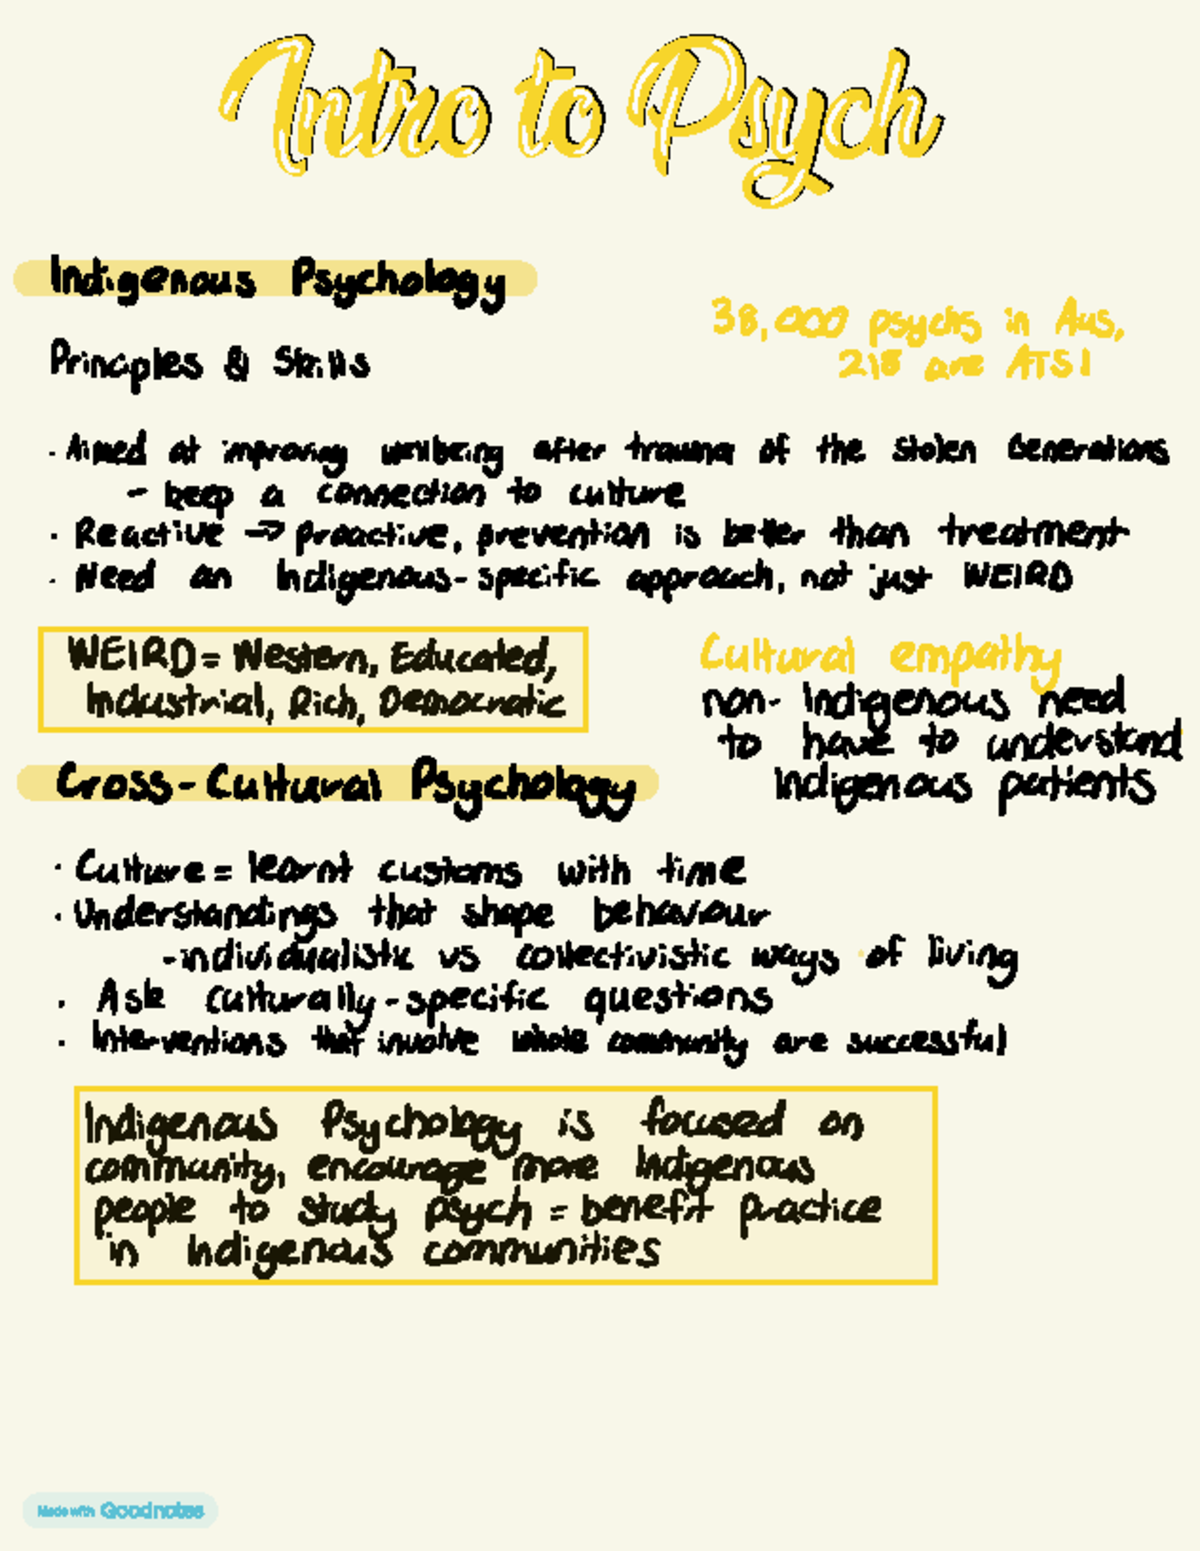 Intro to Psych
Indigenous Psychology
38,000 psychs in Aus,
218 are ATSI
Principles & Skills
· Aimed at improving wellbeing after trauma of the Stolen Generations
- keep a connection to culture
· Reactive → proactive, prevention is better than treatment
· Need an Indigenous-specific approach, not just WEIRD
WEIRD = Western, Educated,
Industrial, Rich, Democratic
Cultural empathy
non-Indigenous need
to have to understand
Indigenous patients
Cross-Cultural Psychology
· Culture = learnt customs with time
· Understandings that shape behaviour
- individualistic vs collectivistic ways of living
· Ask culturally-specific questions
· Interventions that involve whole community are successful
Indigenous Psychology is focused on
community, encourage more Indigenous
people to study psych = benefit practice
in Indigenous communities
Made with Goodnotes